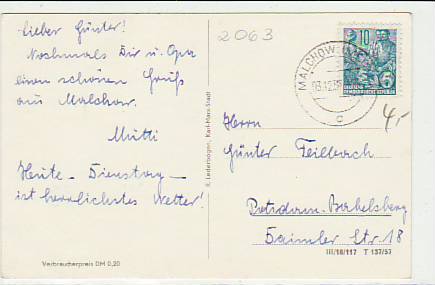 Lieber Günter!
Nochmals Dir u. Opa
einen schönen Gruß
aus Malchow.
Mutti
Heute - Dienstag -
ist herrlichstes Wetter!
Verbraucherpreis DM 0,20
R. Lederbogen, Karl-Marx-Stadt
2063
MALCHOW
c
10
5
4,-
Herrn
Günter
Potsdam-Babelsberg
Daimler Str. 18
III/18/117 T 137/57